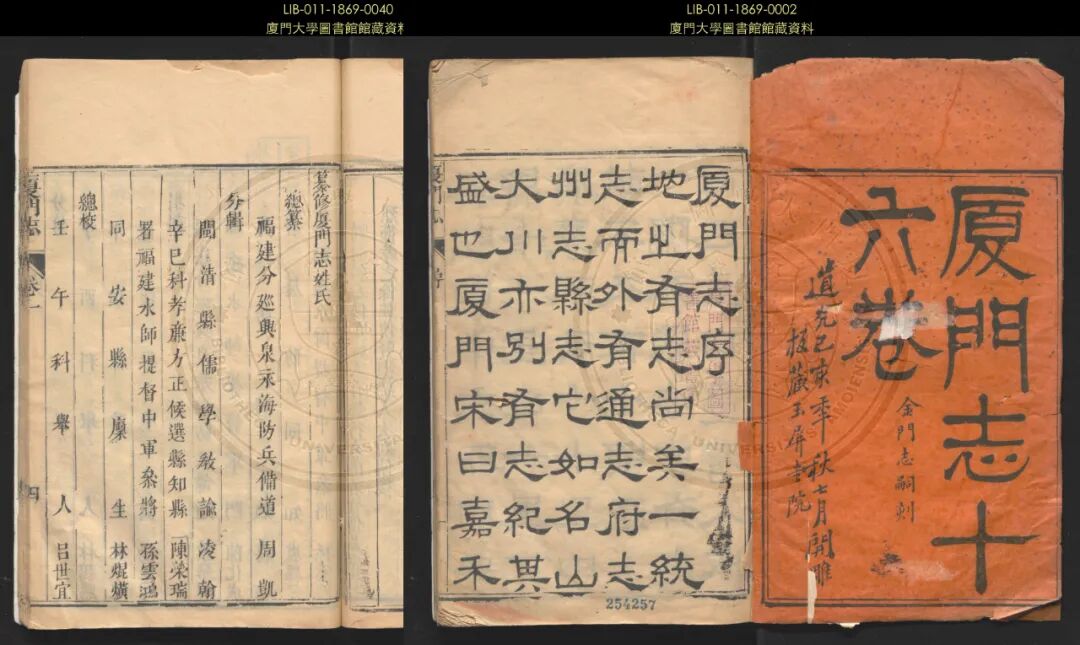 LIB-011-1869-0040
廈門大學圖書館館藏資料
LIB-011-1869-0002
廈門大學圖書館館藏資料
纂修廈門志姓氏
總纂
福建分巡興泉永海防兵備道 周凱
分輯
閩清縣儒學敎諭 凌翰
辛巳科孝廉方正候選縣知縣 陳榮瑞
署福建水師提督中軍叅將 孫雲鴻
同安縣廩生 林焜熿
總校
壬午科舉人 呂世宜
廈門志 卷一 四
廈門志十
六卷
金門志嗣刻
道光己亥年秋七月開雕
板藏玉屏書院
廈門志序
地之有志尚矣一統
志而外有通志府志
州志縣志它如名山
大川亦別有志紀其
盛也廈門宋曰嘉禾
廈門志 序
254257